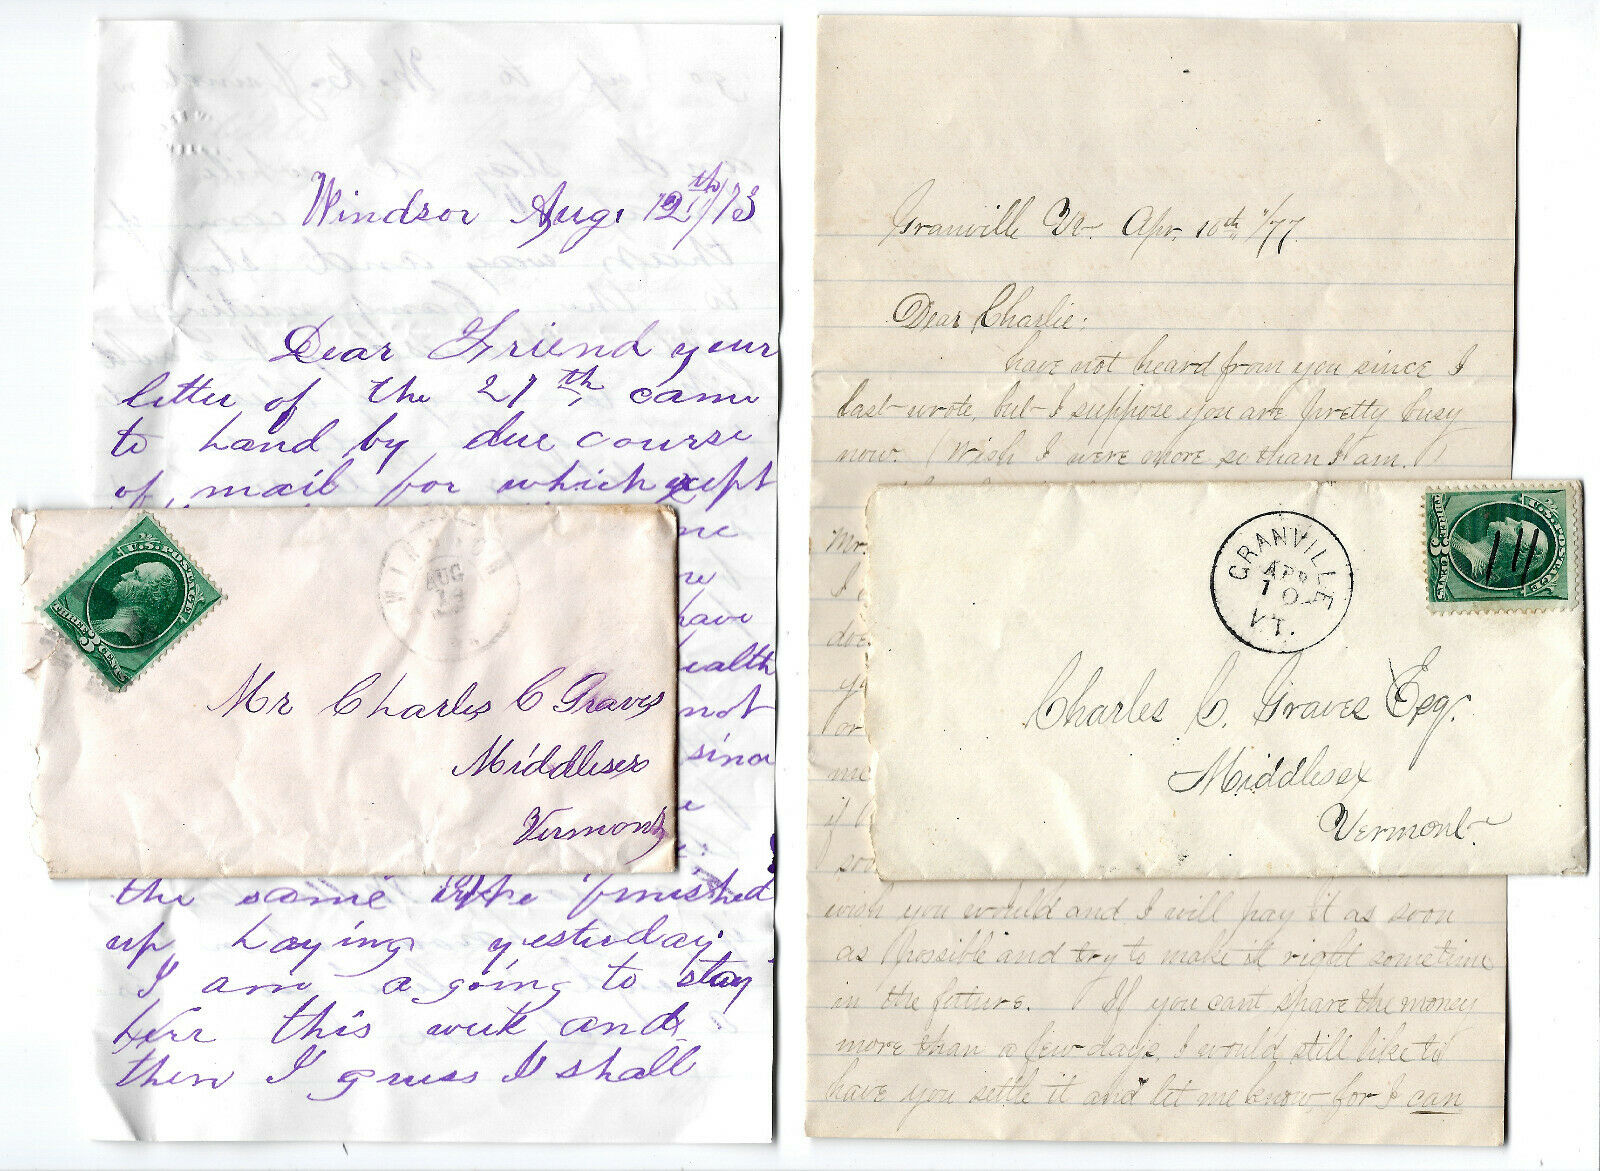 Windsor Aug. 12th/73
Dear Friend your
letter of the 27th came
to hand by due course
of mail for which
me
re
have
health
not
since
the same we finished
up haying yesterday
I am a going to stay
here this week and
then I guess I shall
U.S. POSTAGE
THREE 3 CENTS
AUG
Mr Charles C Graves
Middlesex
Vermont
Granville Vt. Apr. 10th, /77.
Dear Charlie:
have not heard from you since I
last wrote, but I suppose you are pretty busy
now. (Wish I were more so than I am.)
Mr.
I
doe
yo
or
me
if
soo
wish you would and I will pay it as soon
as possible and try to make it right sometime
in the future. If you cant spare the money
more than a few days, I would still like to
have you settle it and let me know, for I can
GRANVILLE
APR
10
VT.
U.S. POSTAGE
THREE 3 CENTS
Charles C. Graves Esq.
Middlesex
Vermont